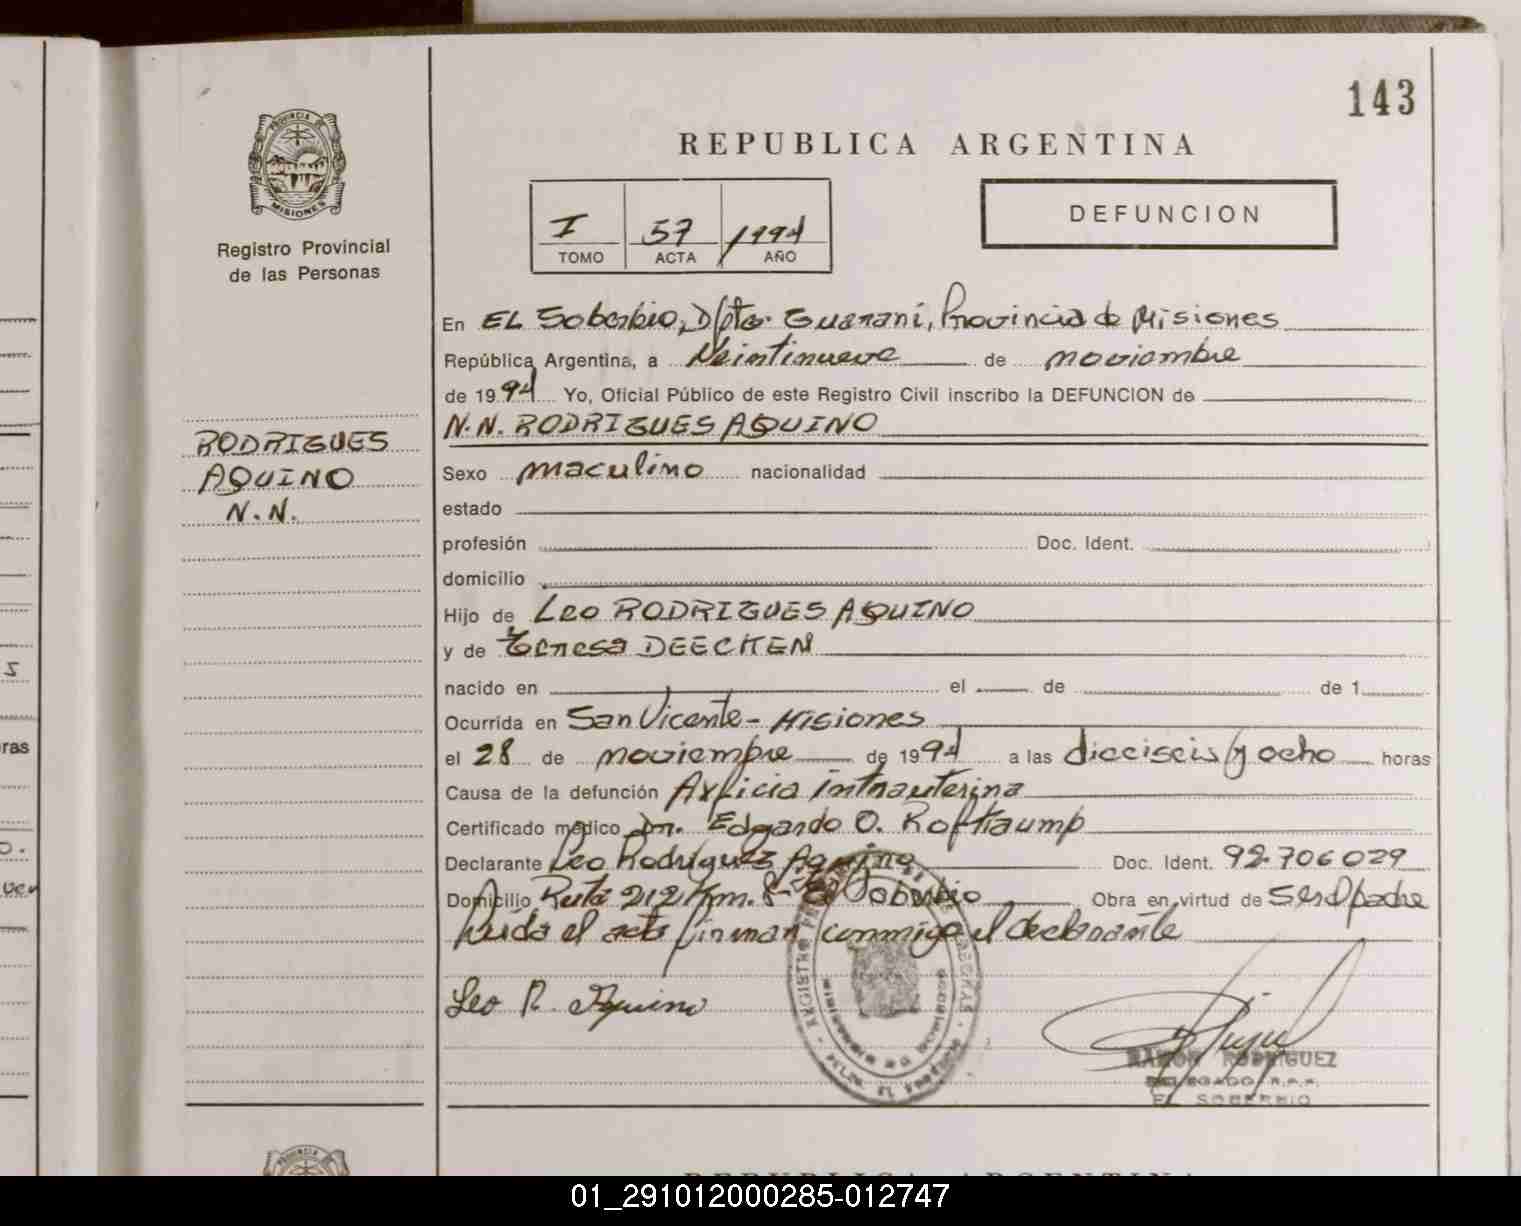 143
PROVINCIA DE
MISIONES
Registro Provincial
de las Personas
REPUBLICA ARGENTINA
I 57 1994
TOMO ACTA AÑO
DEFUNCION
En EL Soberbio, Dpto. Guaraní, Provincia de Misiones
República Argentina, a Veintinueve de noviembre
de 1994 Yo, Oficial Público de este Registro Civil inscribo la DEFUNCION de
N.N. RODRIGUES AQUINO
RODRIGUES
AQUINO
N.N.
Sexo maculino nacionalidad
estado
profesión Doc. Ident.
domicilio
Hijo de Leo RODRIGUES AQUINO
y de Teresa DEECKEN
nacido en el de de 1
Ocurrida en San Vicente - Misiones
el 28 de noviembre de 1994 a las dieciseis y ocho horas
Causa de la defunción Axficia intrauterina
Certificado médico Dr. Edgardo O.
Declarante Leo Rodriguez Aquino Doc. Ident. 92.706029
Domicilio Ruta 212 Km. 8 - El Soberbio Obra en virtud de Ser el padre
Leída el acta firman conmigo el declarante
Leo R. Aquino
RAMON RODRIGUEZ
DELEGADO R.P.P.
EL SOBERBIO
REPUBLICA ARGENTINA
01_291012000285-012747